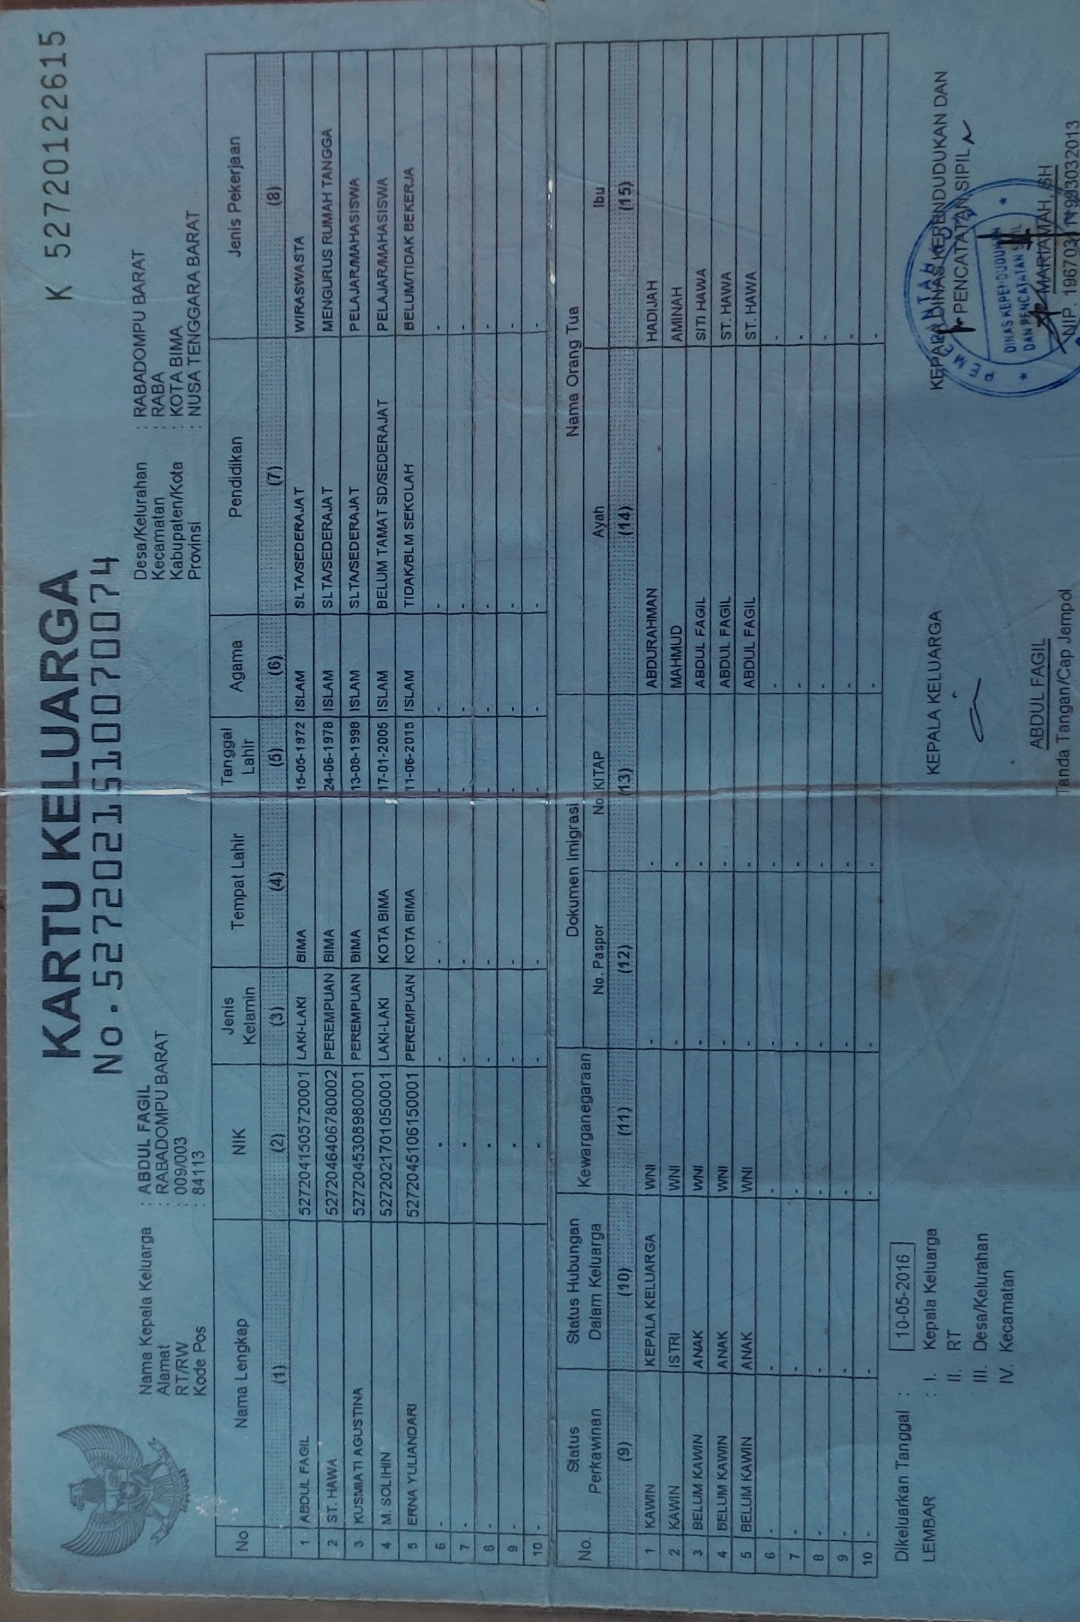 KARTU KELUARGA
No. 5272021510070074
K 52720122615
Nama Kepala Keluarga : ABDUL FAGIL
Alamat : RABADOMPU BARAT
RT/RW : 009/003
Kode Pos : 84113
Desa/Kelurahan : RABADOMPU BARAT
Kecamatan : RABA
Kabupaten/Kota : KOTA BIMA
Provinsi : NUSA TENGGARA BARAT
No Nama Lengkap NIK Jenis Kelamin Tempat Lahir Tanggal Lahir Agama Pendidikan Jenis Pekerjaan
(1) (2) (3) (4) (5) (6) (7) (8)
1 ABDUL FAGIL 5272041505720001 LAKI-LAKI BIMA 15-05-1972 ISLAM SLTA/SEDERAJAT WIRASWASTA
2 ST. HAWA 5272046406780002 PEREMPUAN BIMA 24-06-1978 ISLAM SLTA/SEDERAJAT MENGURUS RUMAH TANGGA
3 KUSMIATI AGUSTINA 5272045308980001 PEREMPUAN BIMA 13-08-1998 ISLAM SLTA/SEDERAJAT PELAJAR/MAHASISWA
4 M. SOLIHIN 5272021701050001 LAKI-LAKI KOTA BIMA 17-01-2005 ISLAM BELUM TAMAT SD/SEDERAJAT PELAJAR/MAHASISWA
5 ERNA YULIANDARI 5272045106150001 PEREMPUAN KOTA BIMA 11-06-2015 ISLAM TIDAK/BLM SEKOLAH BELUM/TIDAK BEKERJA
6 - - - - - - - -
7 - - - - - - - -
8 - - - - - - - -
9 - - - - - - - -
10 - - - - - - - -
No. Status Perkawinan Status Hubungan Dalam Keluarga Kewarganegaraan Dokumen Imigrasi Nama Orang Tua
No. Paspor No. KITAP Ayah Ibu
(9) (10) (11) (12) (13) (14) (15)
1 KAWIN KEPALA KELUARGA WNI - - ABDURAHMAN HADIJAH
2 KAWIN ISTRI WNI - - MAHMUD AMINAH
3 BELUM KAWIN ANAK WNI - - ABDUL FAGIL SITI HAWA
4 BELUM KAWIN ANAK WNI - - ABDUL FAGIL ST. HAWA
5 BELUM KAWIN ANAK WNI - - ABDUL FAGIL ST. HAWA
6 - - - - - - -
7 - - - - - - -
8 - - - - - - -
9 - - - - - - -
10 - - - - - - -
Dikeluarkan Tanggal : 10-05-2016
LEMBAR : I. Kepala Keluarga
II. RT
III. Desa/Kelurahan
IV. Kecamatan
KEPALA KELUARGA
ABDUL FAGIL
Tanda Tangan/Cap Jempol
KEPALA DINAS KEPENDUDUKAN DAN
PENCATATAN SIPIL
DINAS KEPENDUDUKAN
DAN PENCATATAN SIPIL
MARIAMAH, SH
NIP.